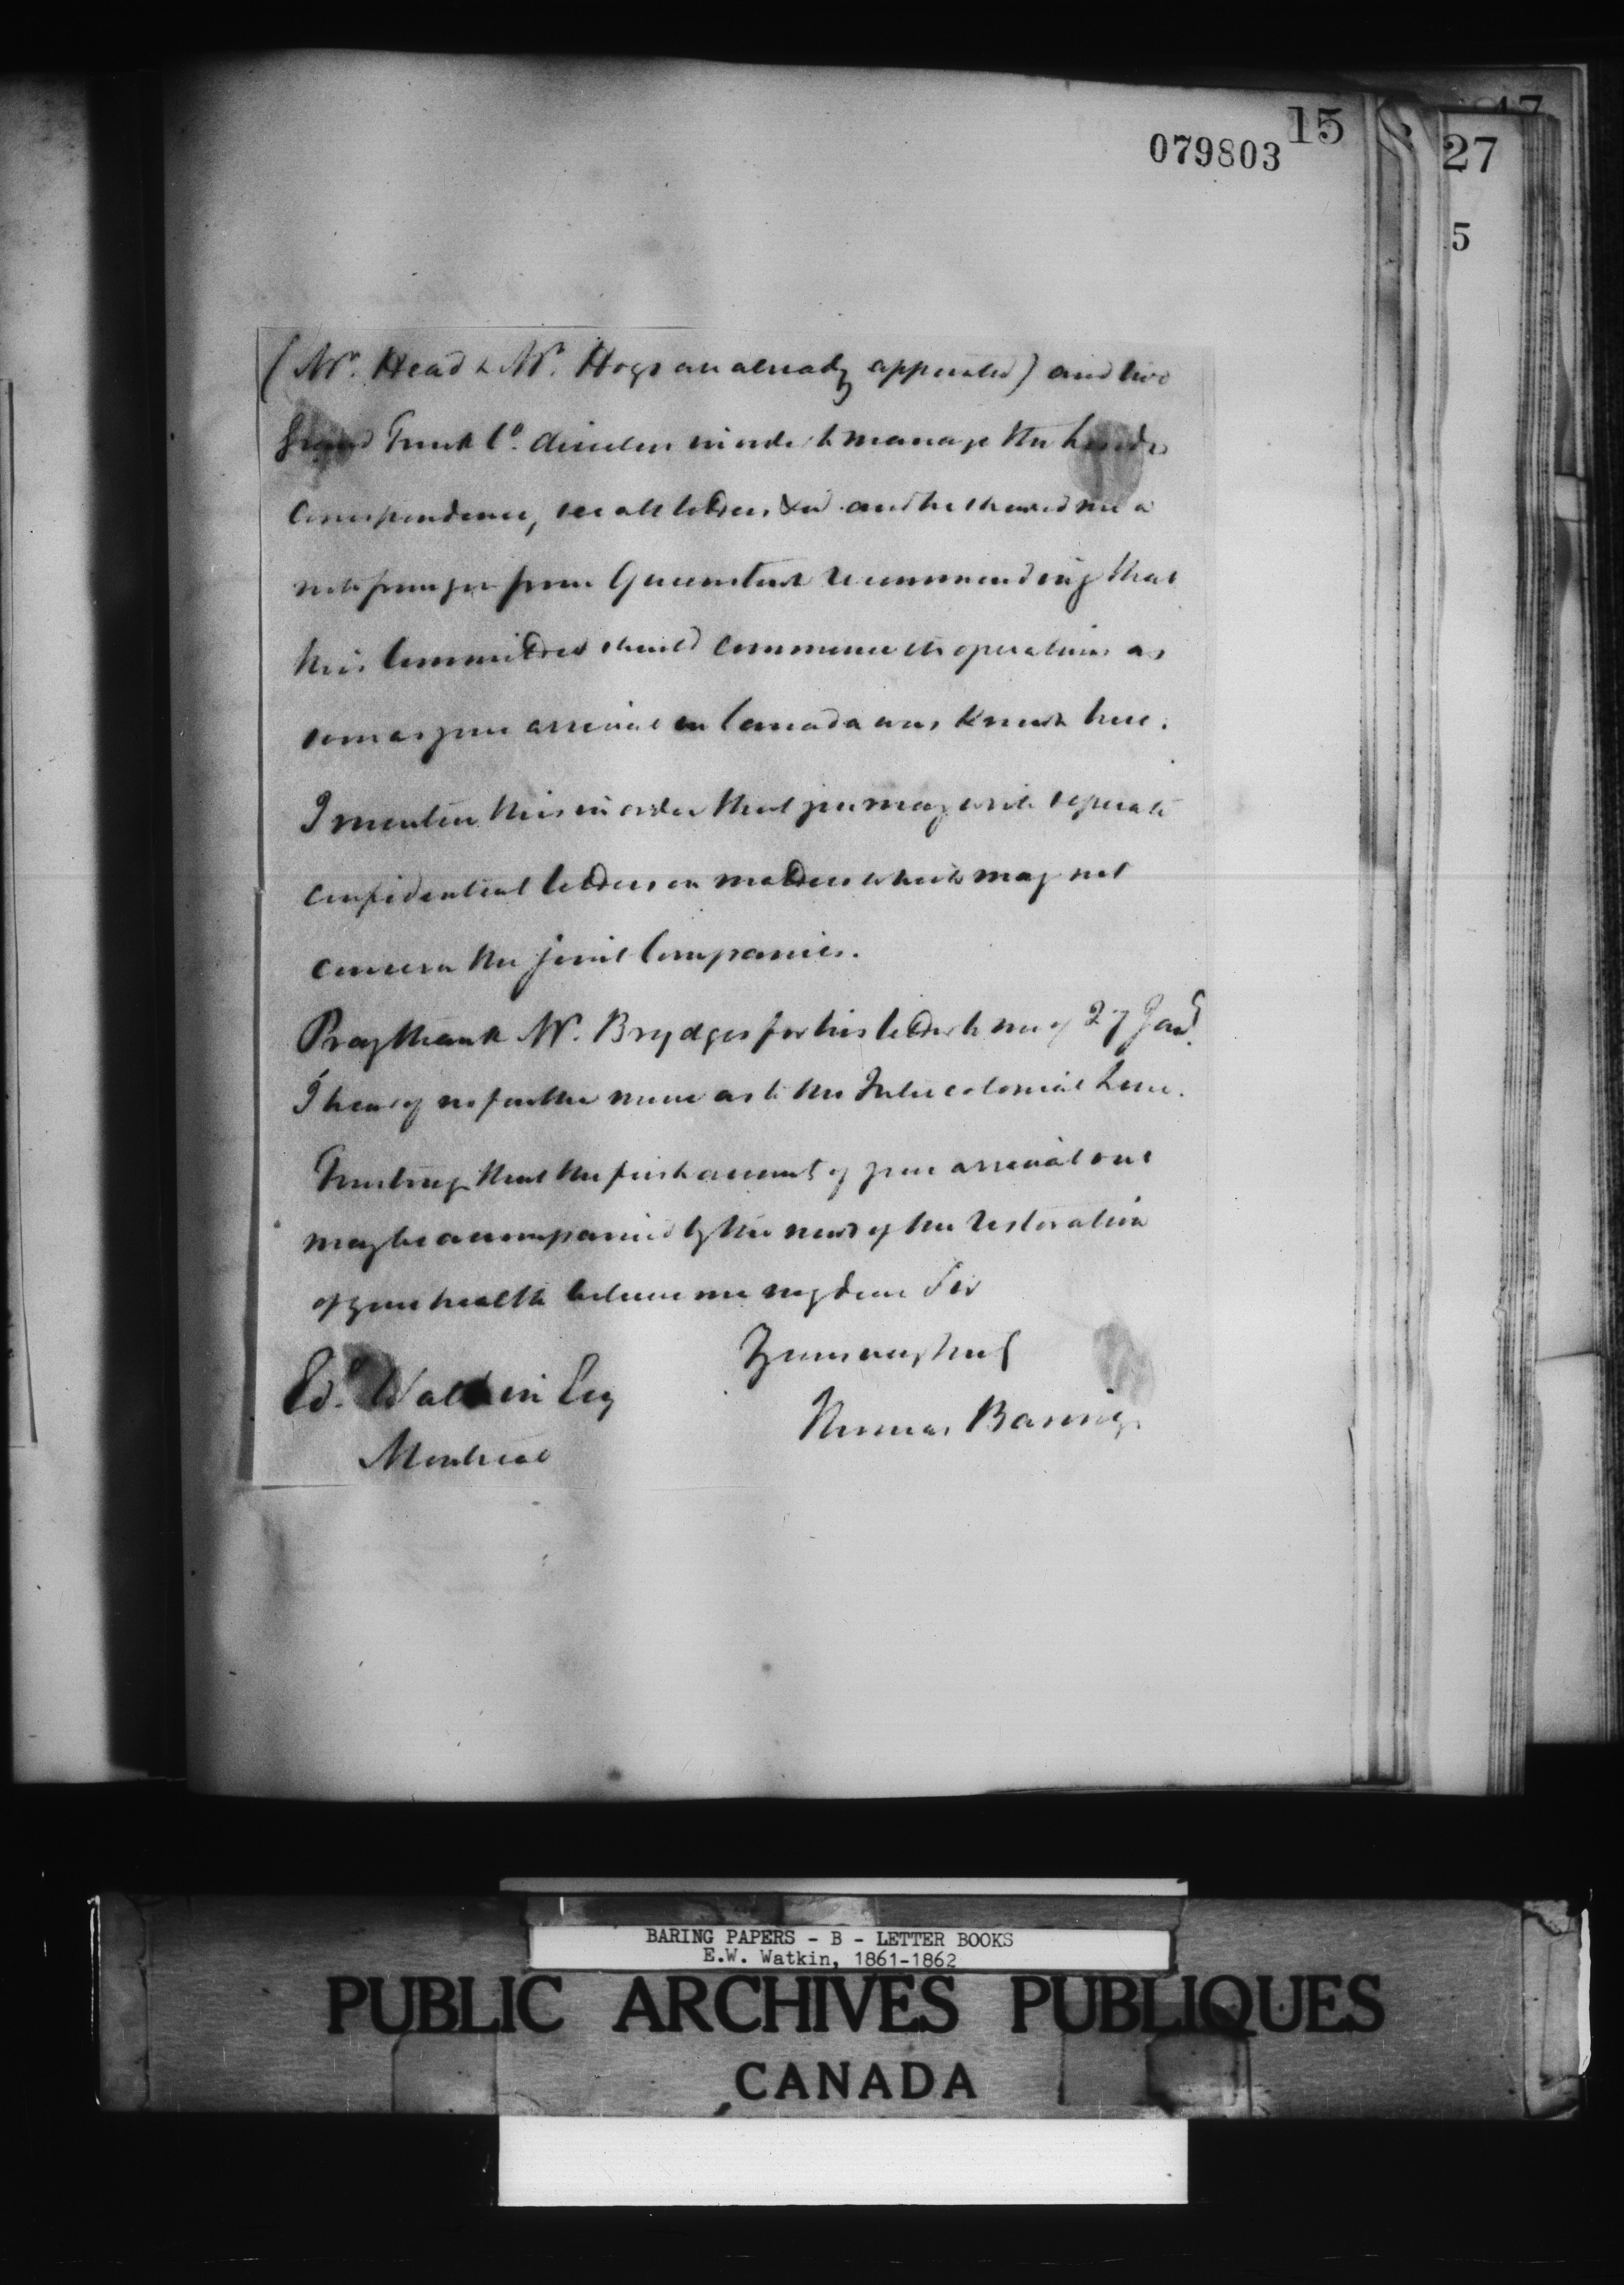 15
079803
17
27
5
(Mr. Head & Mr. Hogs are already appointed) and two
Grand Trunk Co. directors in order to manage the London
Correspondence, see all letters &c and he showed me a
note from you from Queenstown recommending that
this Committee should commence its operations as
soon as your arrival in Canada was known here.
I mention this in order that you may write separate
confidential letters on matters which may not
concern the joint Companies.
Pray thank Mr. Brydges for his letter to me of 27 Jany.
I hear of no further move as to the Intercolonial Line.
Trusting that the first account of your arrival out
may be accompanied by the news of the restoration
of your health believe me my dear Sir
Yours very truly
Thomas Baring
Ed. Watkin Esq
Montreal
BARING PAPERS - B - LETTER BOOKS
E.W. Watkin, 1861-1862
PUBLIC ARCHIVES PUBLIQUES
CANADA